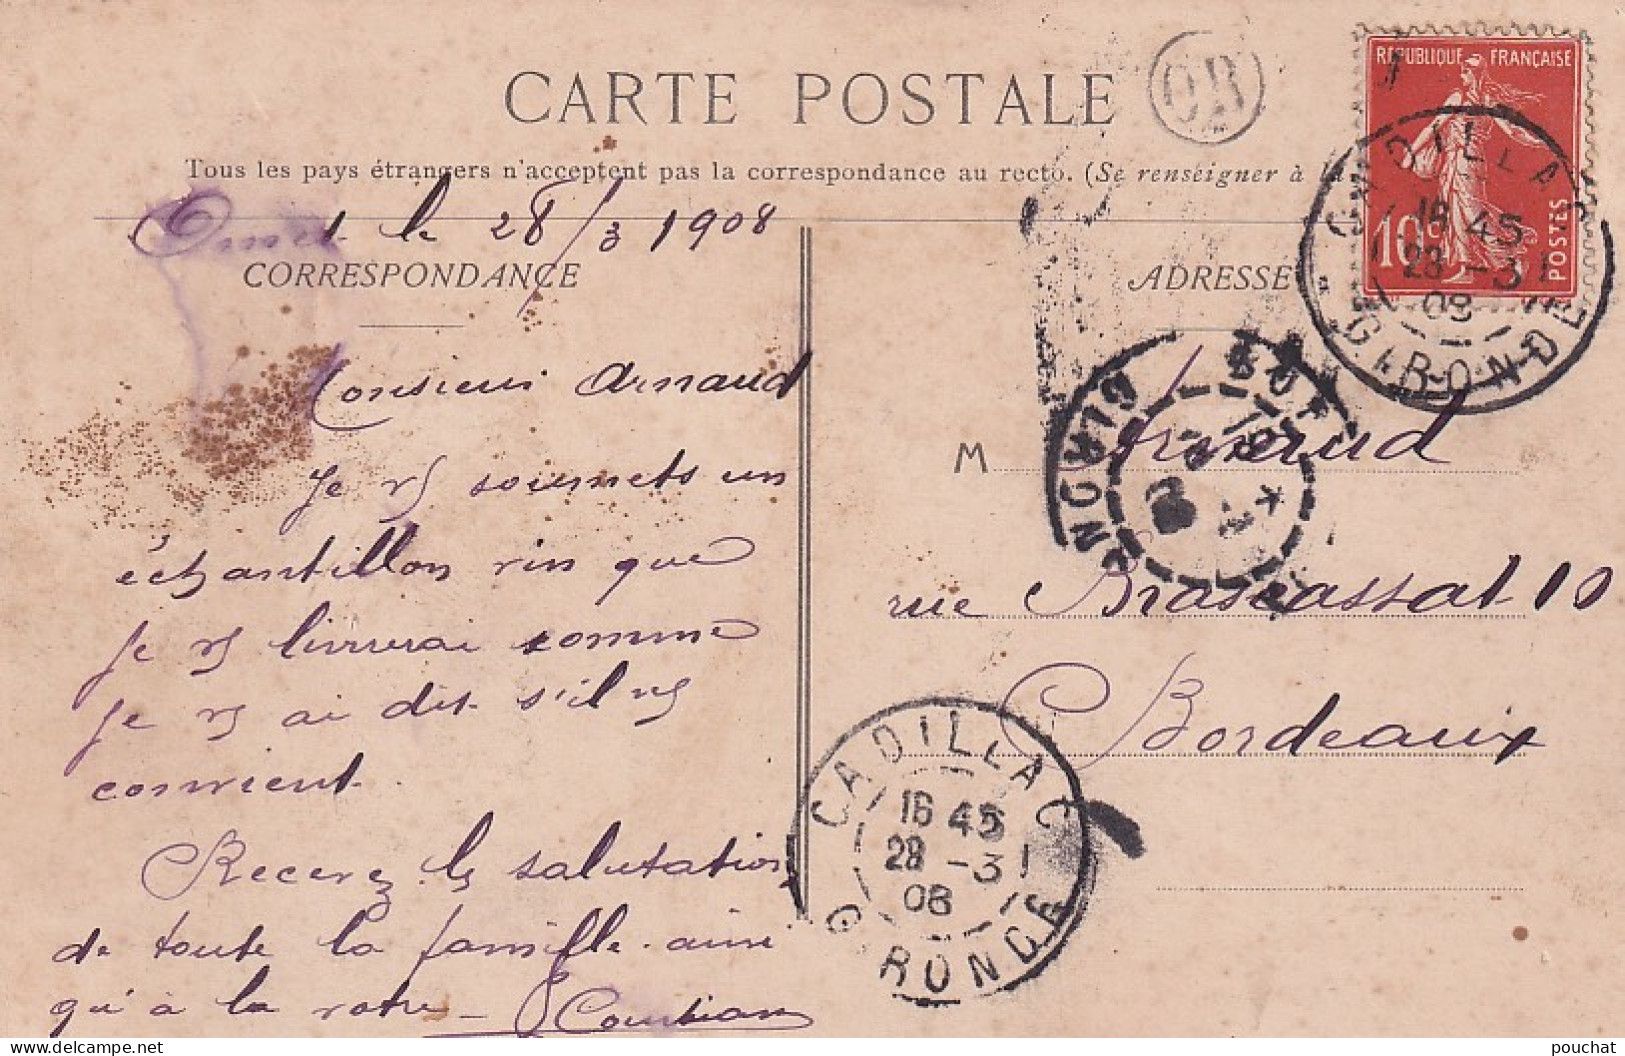 CARTE POSTALE
OR
Tous les pays étrangers n'acceptent pas la correspondance au recto. (Se renseigner à la
REPUBLIQUE FRANÇAISE
10c POSTES
CADILLAC
16 45
28 -3
08
GIRONDE
Omet le 28/3 1908
CORRESPONDANCE
Monsieur Arnaud
Je vs soumets un
échantillon vin que
je vs livrerai comme
je vs ai dit s'il vs
convient.
Recevez les salutations
de toute la famille ainsi
qu'à la votre
ADRESSE
M Arnaud
rue Brascassat 10
Bordeaux
GIRONDE
CADILLAC
16 45
28 -3
08
GIRONDE
pouchat